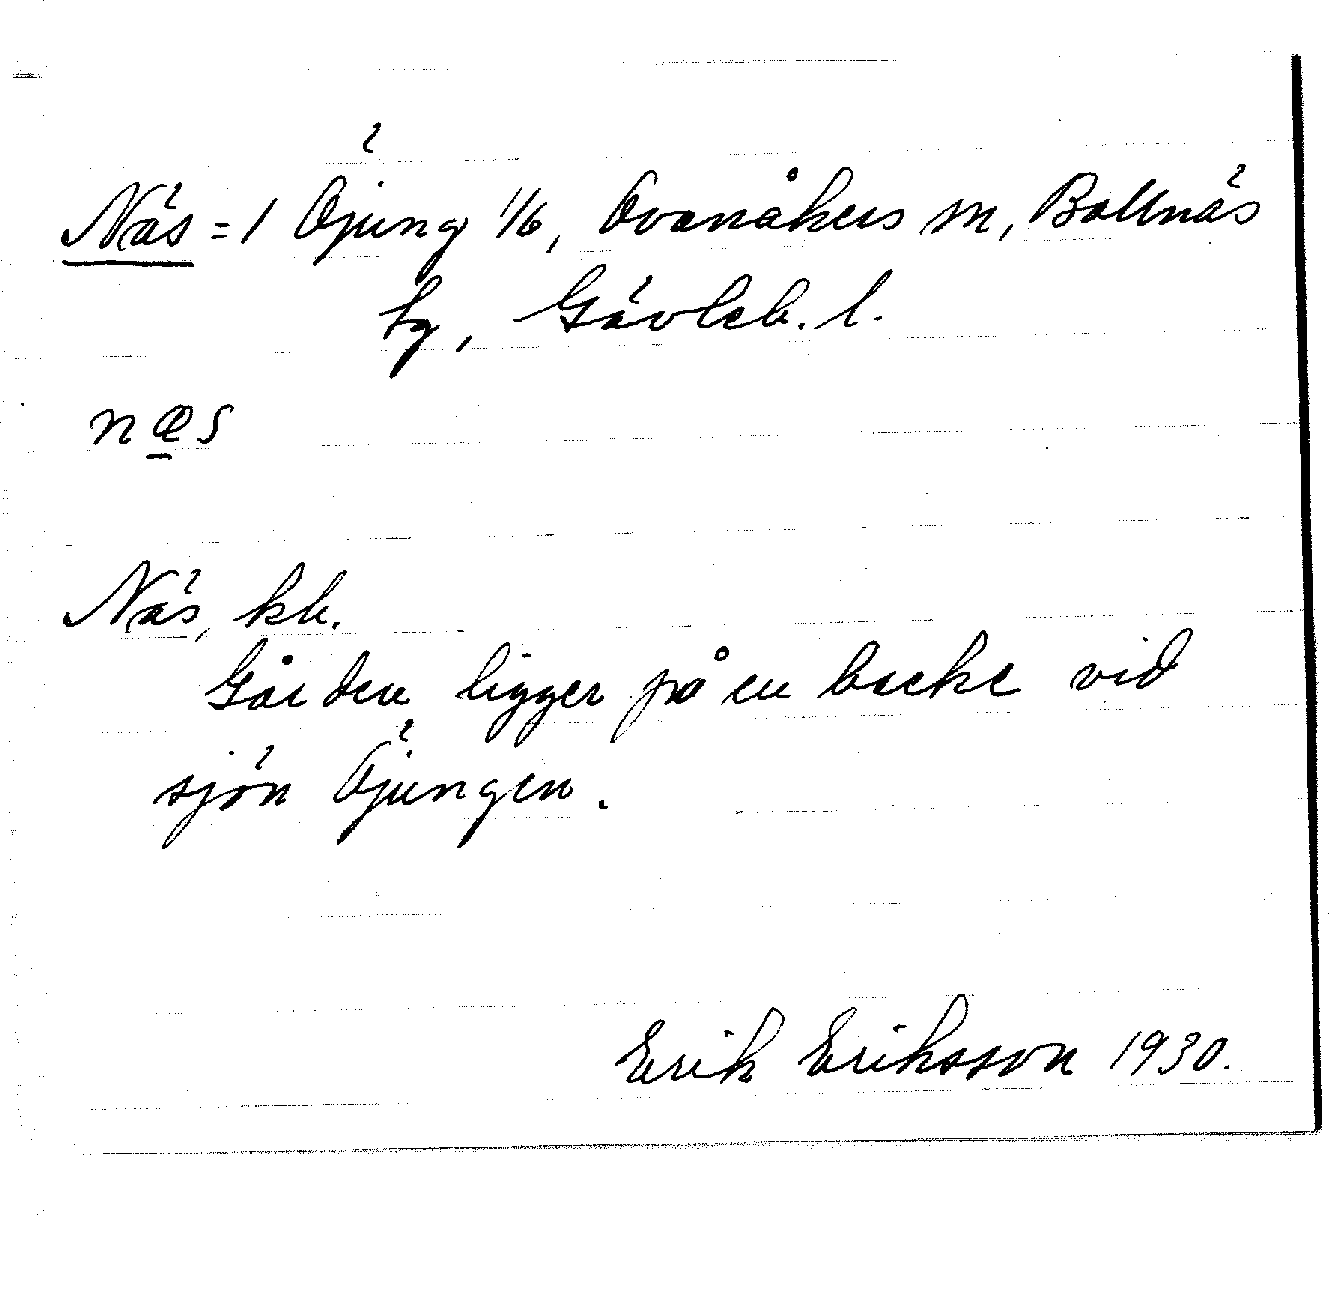 Näs = 1 Öjung 1/6, Ovanåkers sn, Bollnäs
tg, Gävleb. l.
næs
Näs, kb.
Gården ligger på en backe vid
sjön Öjungen.
Erik Eriksson 1930.